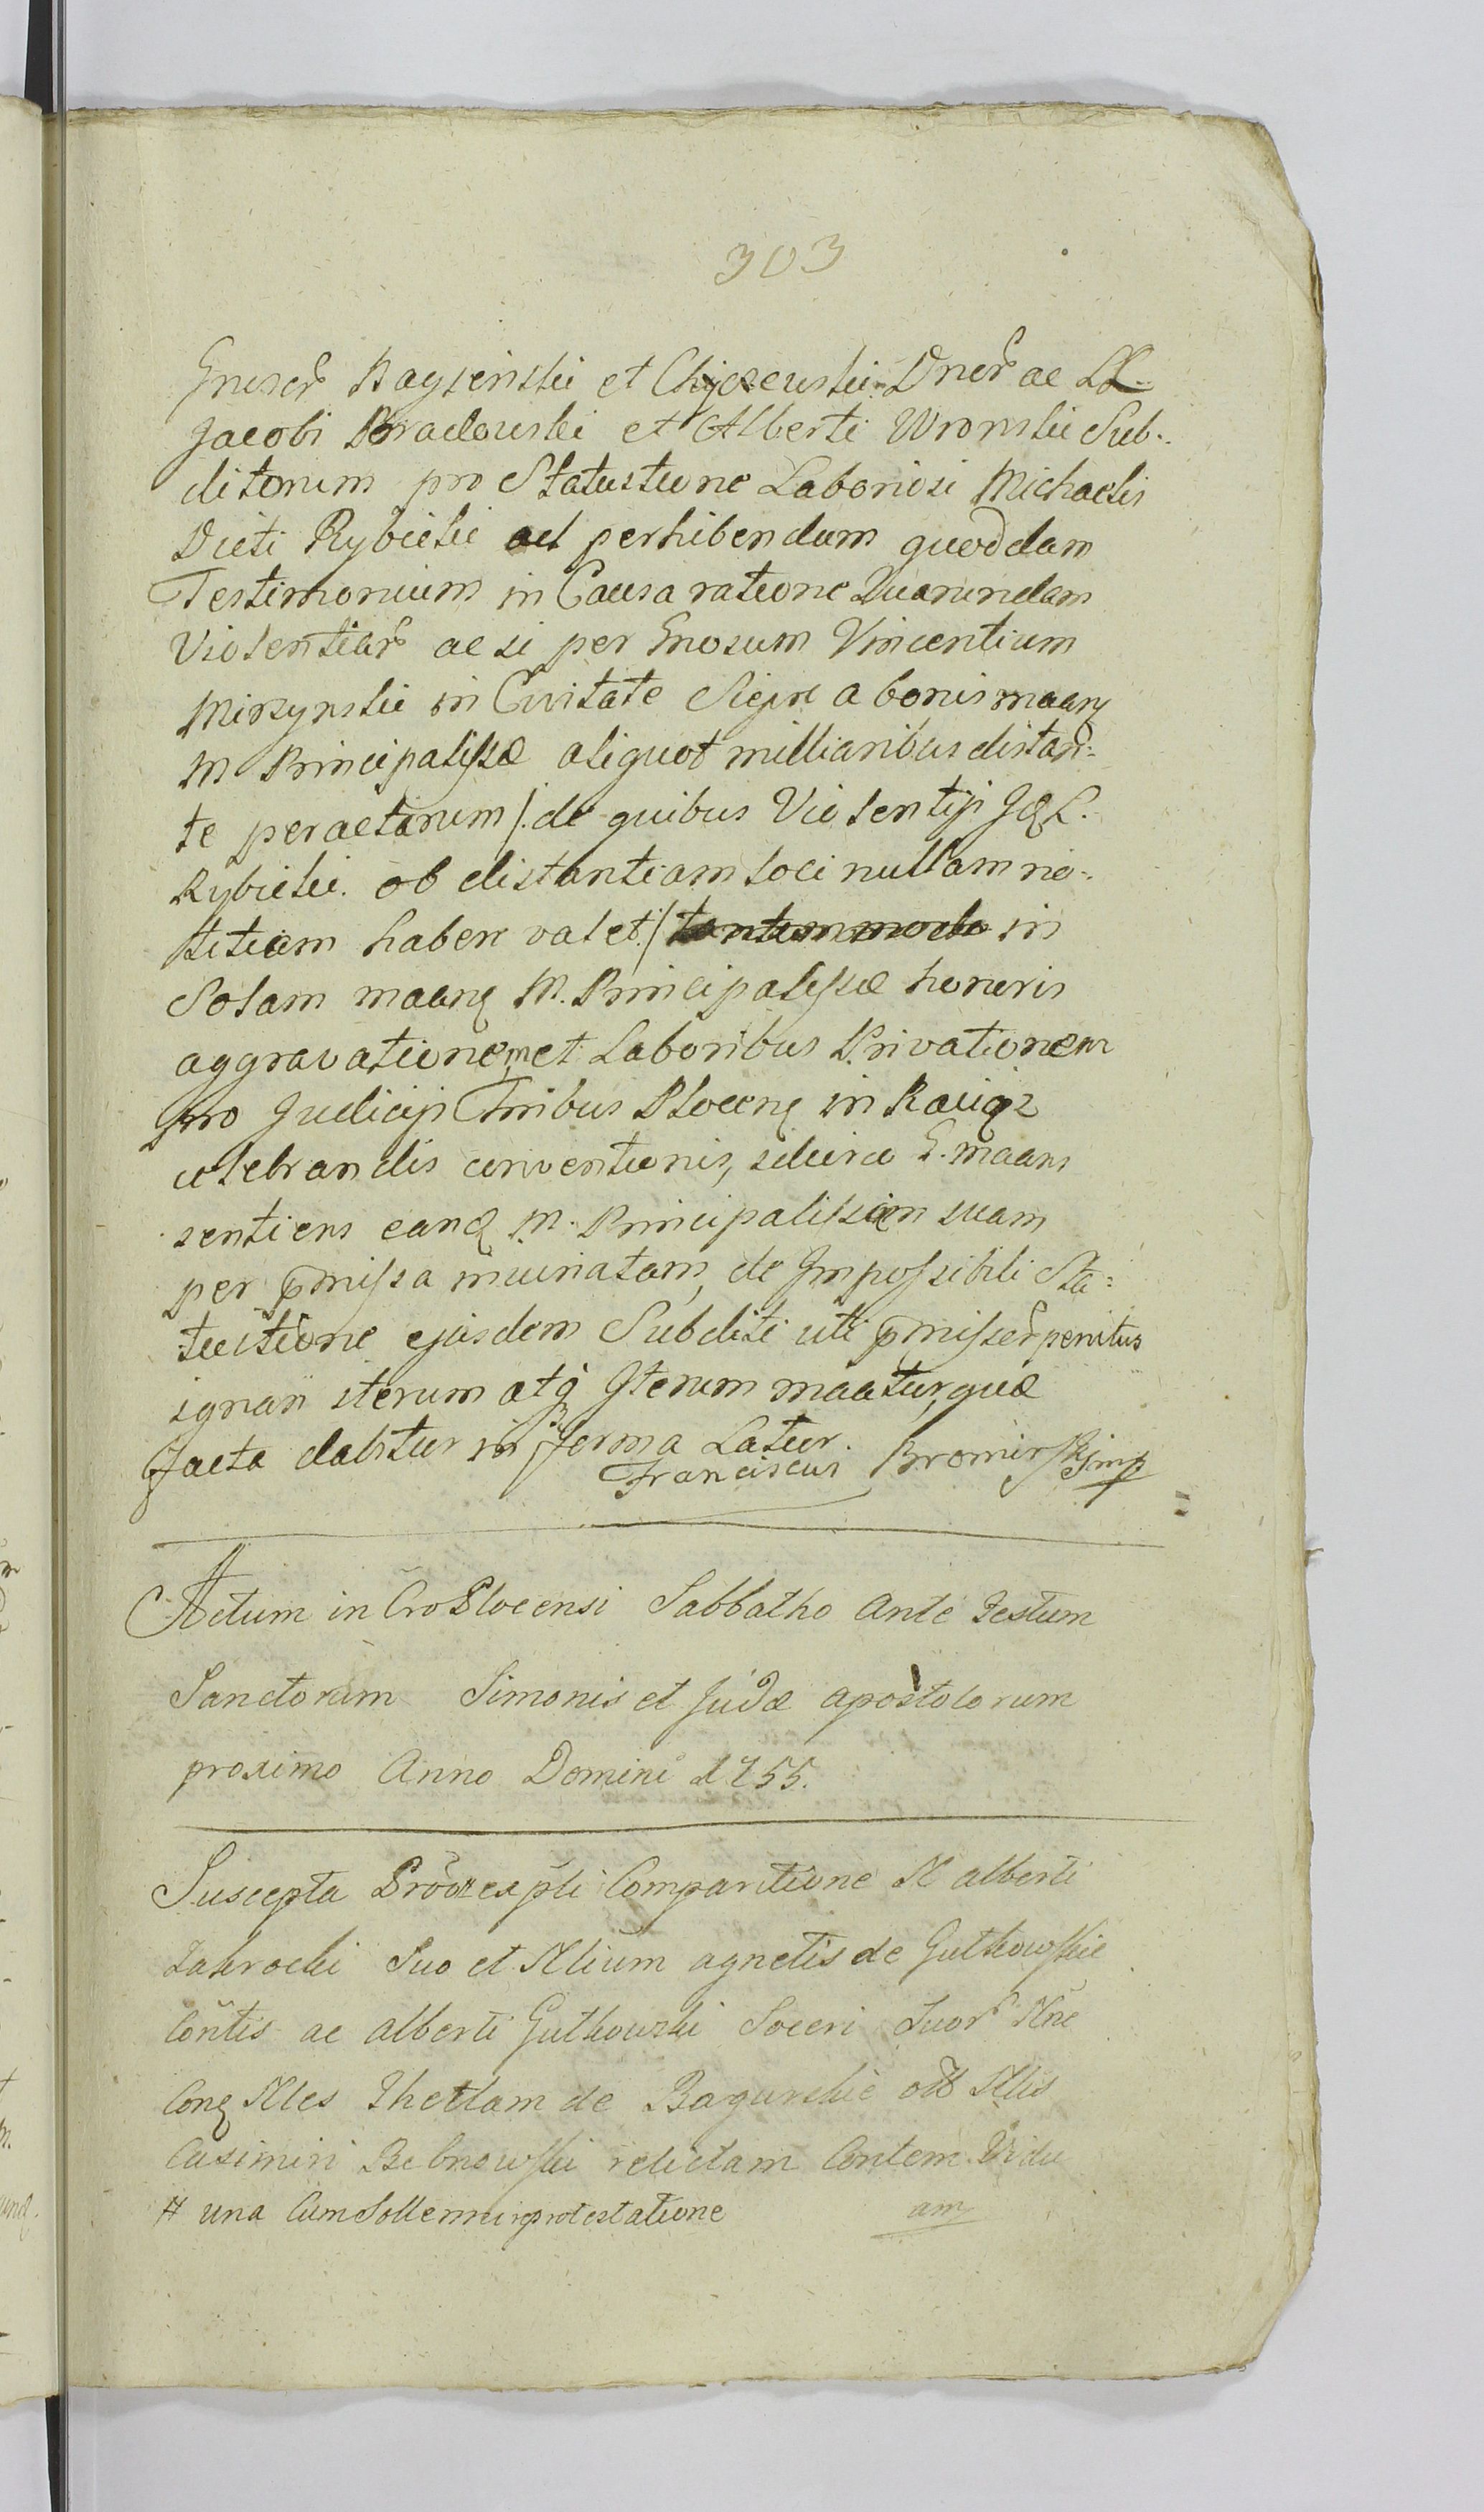 303
Gnuser Bagzenskii et Chyczewskii Dner ac LL
Jacobi Bradowski et Alberti Wronski Sub..
ditorum pro Statuitione Laboriosi Michaelis
Dicti Rybicki ad perhibendum quoddam
Testimonium in Causa ratione Quarundam
Violentiar ac si per Gnosum Vincentium
Mirzynski in Civitate Siepre a bonis maanz
M Principalissæ aliquot milliaribus distan=
te peractarum /. de quibus Violentijs Jdq L.
Rybicki. ob distantiam loci nullam no-
titiam habere valet ./ in
Solam maanq M. Principalissæ honeris
aggravationem, et Laboribus Privationem
pro Judicijs Tribus Plocenq in Raciąz
celebrandis conventionis, idcirco G. maans
sentiens eanq M. Principalissam suam
per pmissa iniuriatam, de Impossibili Sta=
tuitione ejusdem Subditi uti pmisser penitus
ignari iterum atq Iterum maatur, quæ
facta dabitur in forma Latur.
Franciscus Bromirski mp
Actum in Cro Plocensi Sabbatho Ante Festum
Sanctorum Simonis et Judæ apostolorum
proximo Anno Domini 1755.
Suscepta pšti Comparitione N alberti
Zakrocki Suo et Nlium agnetis de Gutkowskie
Contis ac alberti Gutkowski Soceri Suor Nne
Conq Nles Theklam de Bagurskie olb Nlis
Casimiri Bebnowski relictam Contem. Vidu
# una Cum Sollenni reprotestatione am